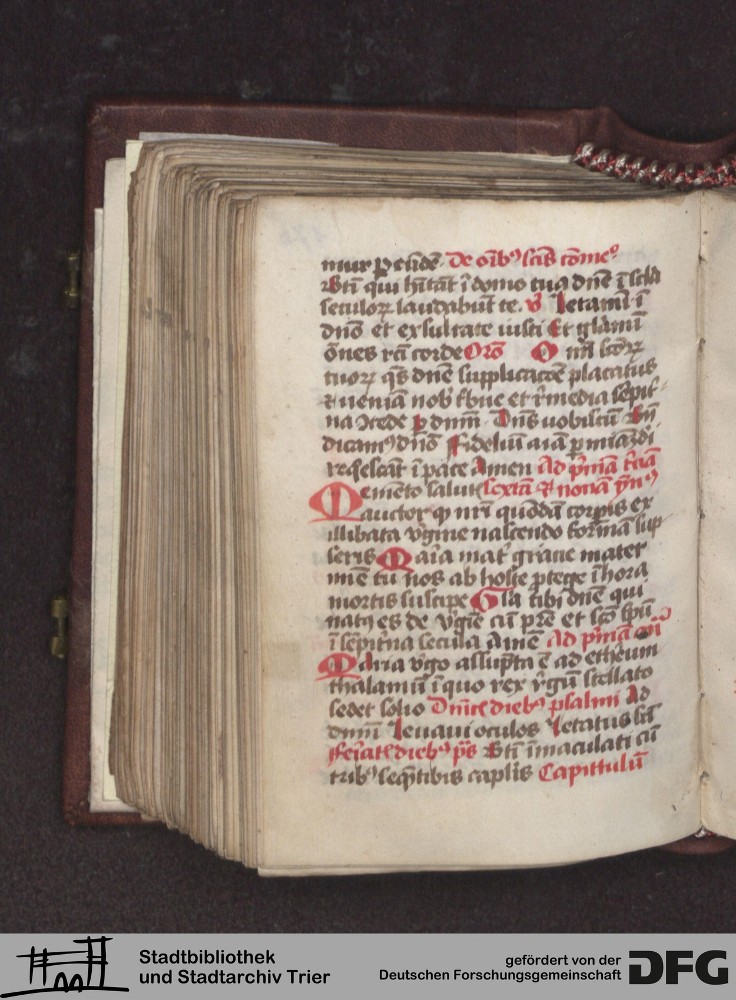 mur p eūdē. De oīb⁹ scīs cōme⁹
Btī qui hītāt ī domo tua dn̄e ī scl̄a
seculoꝝ laudabūt te. v̄ Letamī ī
dn̄o et exsultate iusti Et gl̄amī
ōnes rc̄i corde Orō O nīū sc̄oꝝ
tuoꝝ q̄s dn̄e supplicacōe placatus
⁊ veniā nob̄ t̓bue et r̓media sēpit̓
na ꝯcede p dn̄m Dn̄s vobiscū Bn̄
dicam⁹ dn̄o Fideliū aīā p mīam di
reqescāt ī pace Amen Ad p̓mā t̓ciā
Memēto salut̓ sextā ⁊ nonā ym̄⁹
auctor ꝙ nr̄i quōdā corpis ex
illibata v̓gine nascendo formā sūp
seris Maīa mat̓ gracie mater
mīe tu nos ab hoste ptege ī hora
mortis suscipe Gl̄a tibi dn̄e qui
nat⁹ es de v̓gīe cū pr̄e et sc̄o sp̄u
ī sēpit̓na secula Amē Ad p̓mā an̄
Maria v̓go assūpta ē ad etheum
thalamū ī quo rex r̓gū stellato
sedet solio Dn̄icꝭ dieb⁹ psalmi Ad
dn̄m Leuaui oculos Letatus sū
Feīatꝭ dieb⁹ p̄s Btī īmaculati cū
trib⁹ seqn̄tibus caplis Capittulū
Stadtbibliothek
und Stadtarchiv Trier
gefördert von der
Deutschen Forschungsgemeinschaft
DFG